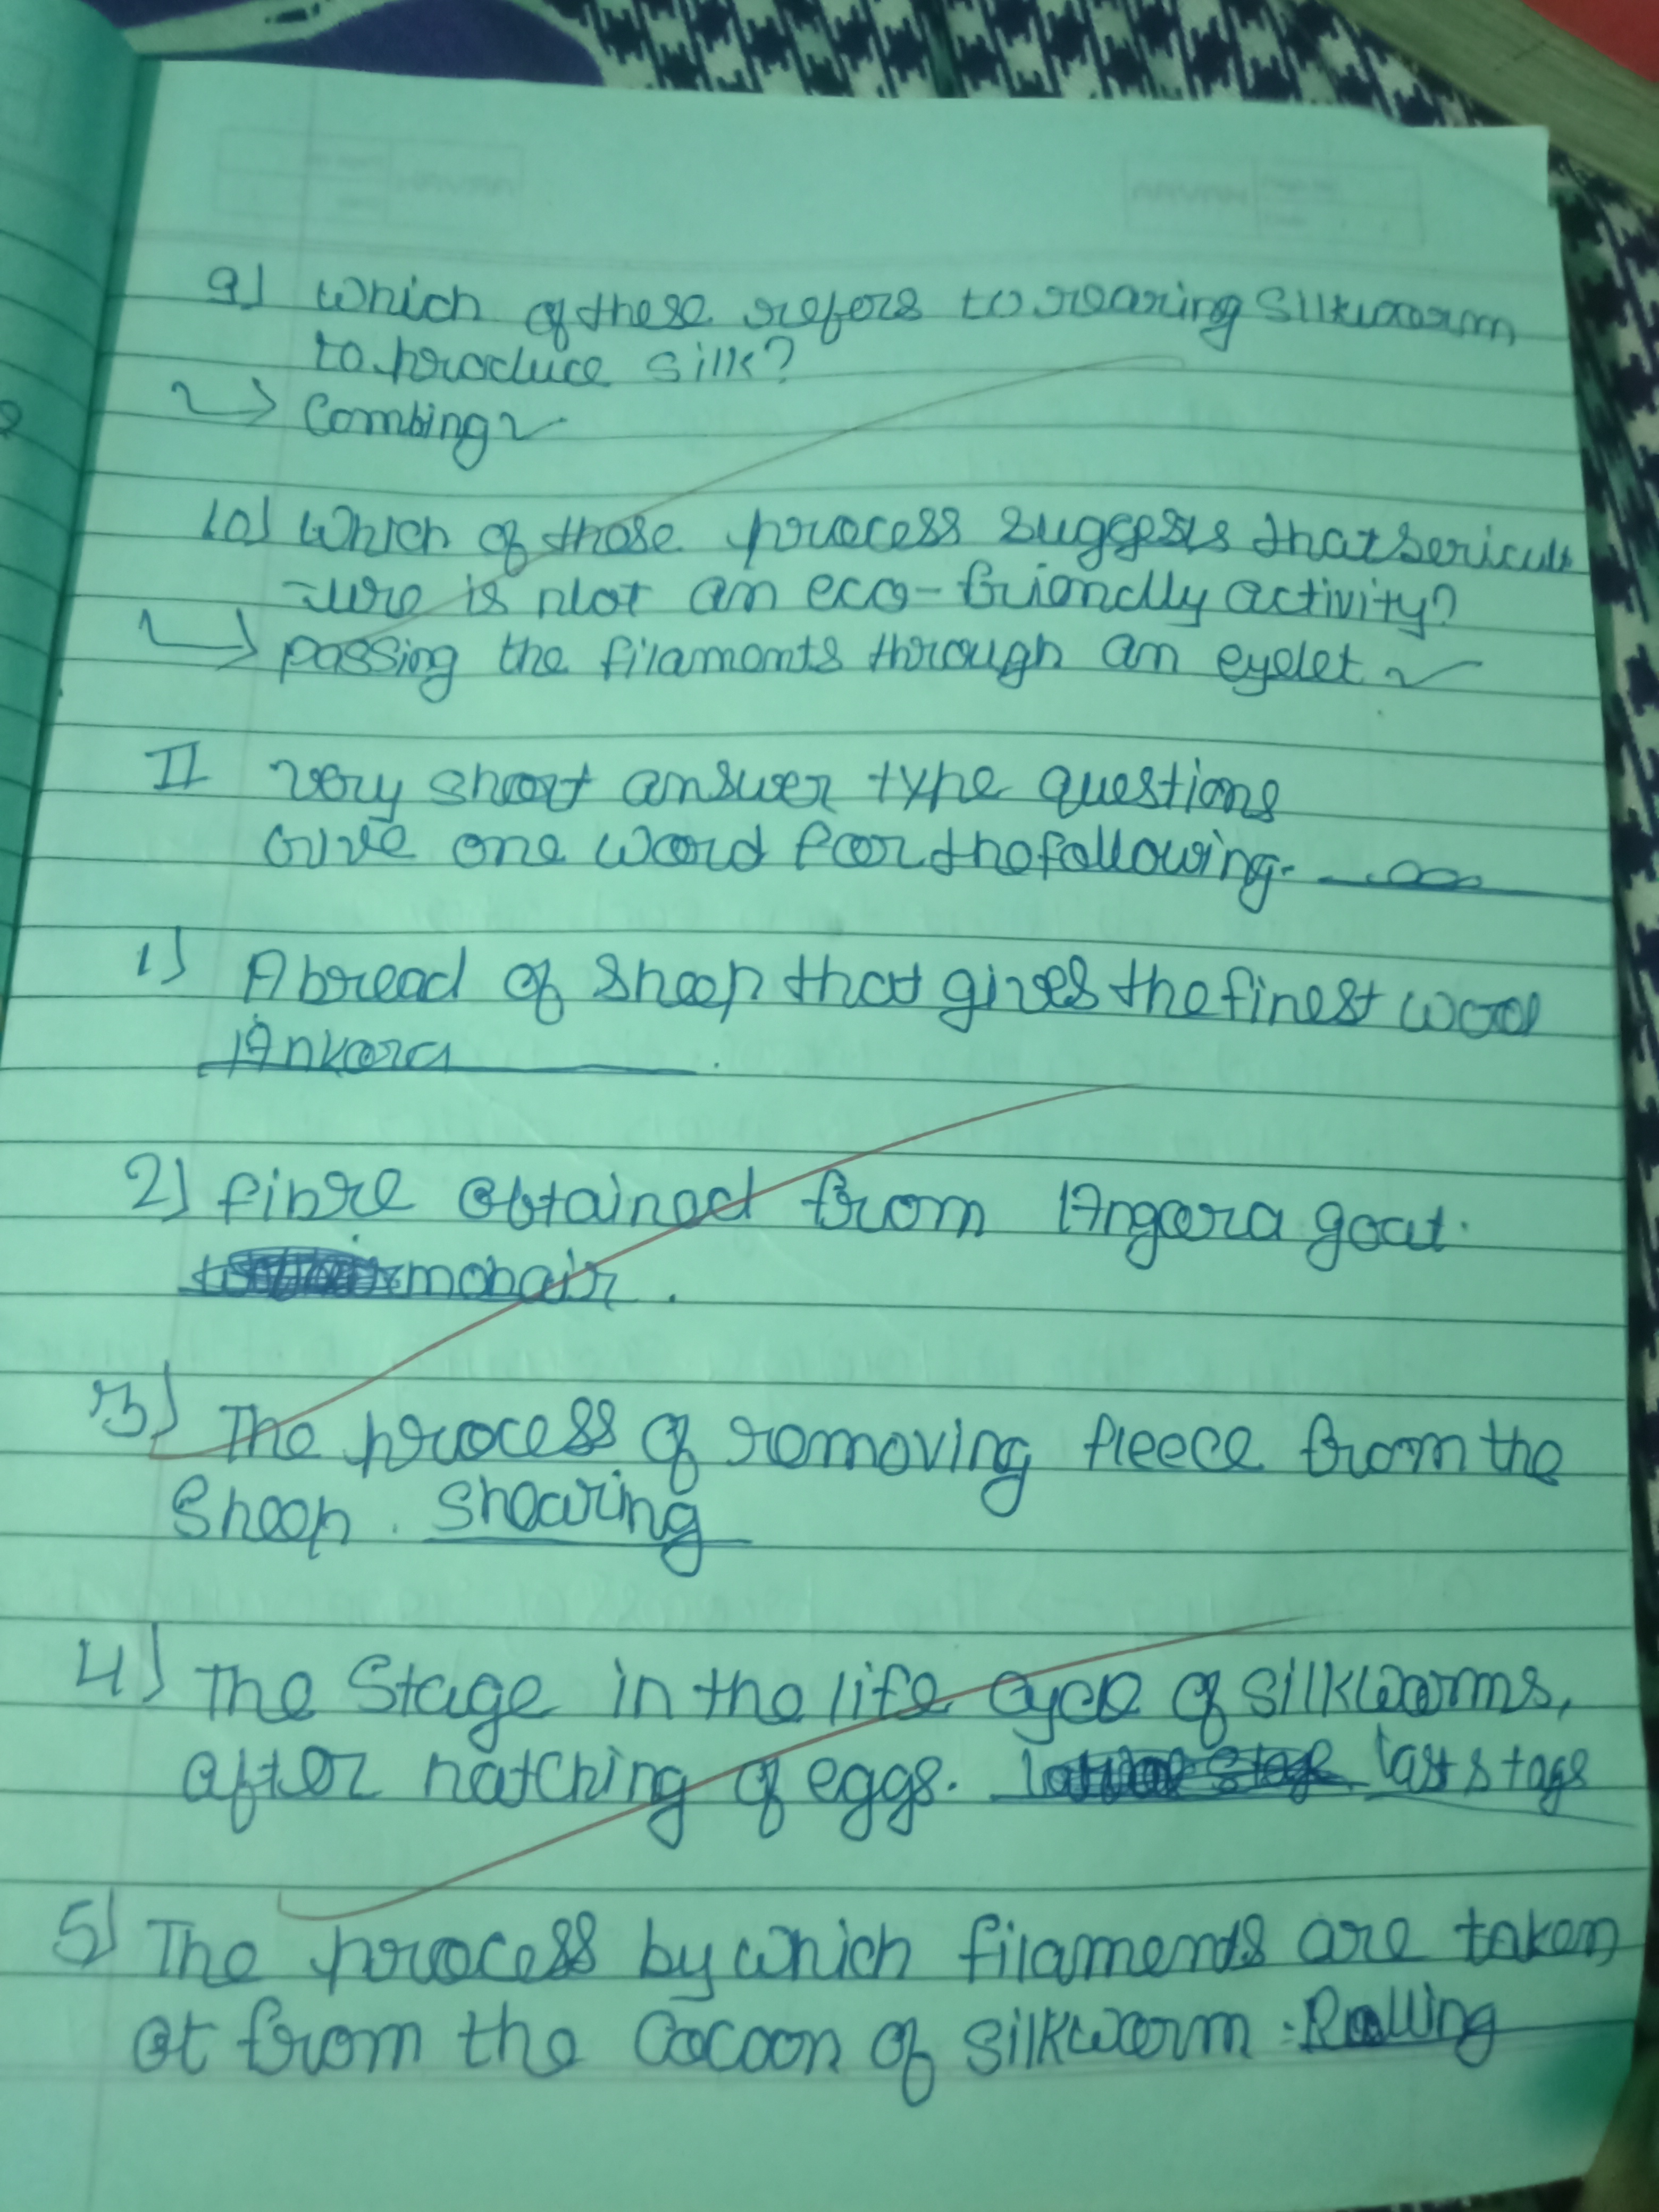 9) Which of these refers to rearing Silkworm
to produce silk?
→ Combing
10) Which of those process suggests that sericult
-ure is not an eco-friendly activity?
→ passing the filaments through an eyelet
II Very short answer type questions
Give one word for the following.
1) A bread of sheep that gives the finest wool
Ankora .
2) fibre obtained from Angora goat.
mohair .
3) The process of removing fleece from the
Sheep . Shearing
4) The Stage in the life cycle of silkworms,
after hatching of eggs. last stage
5) The process by which filaments are taken
ot from the Cocoon of silkworm . Relling